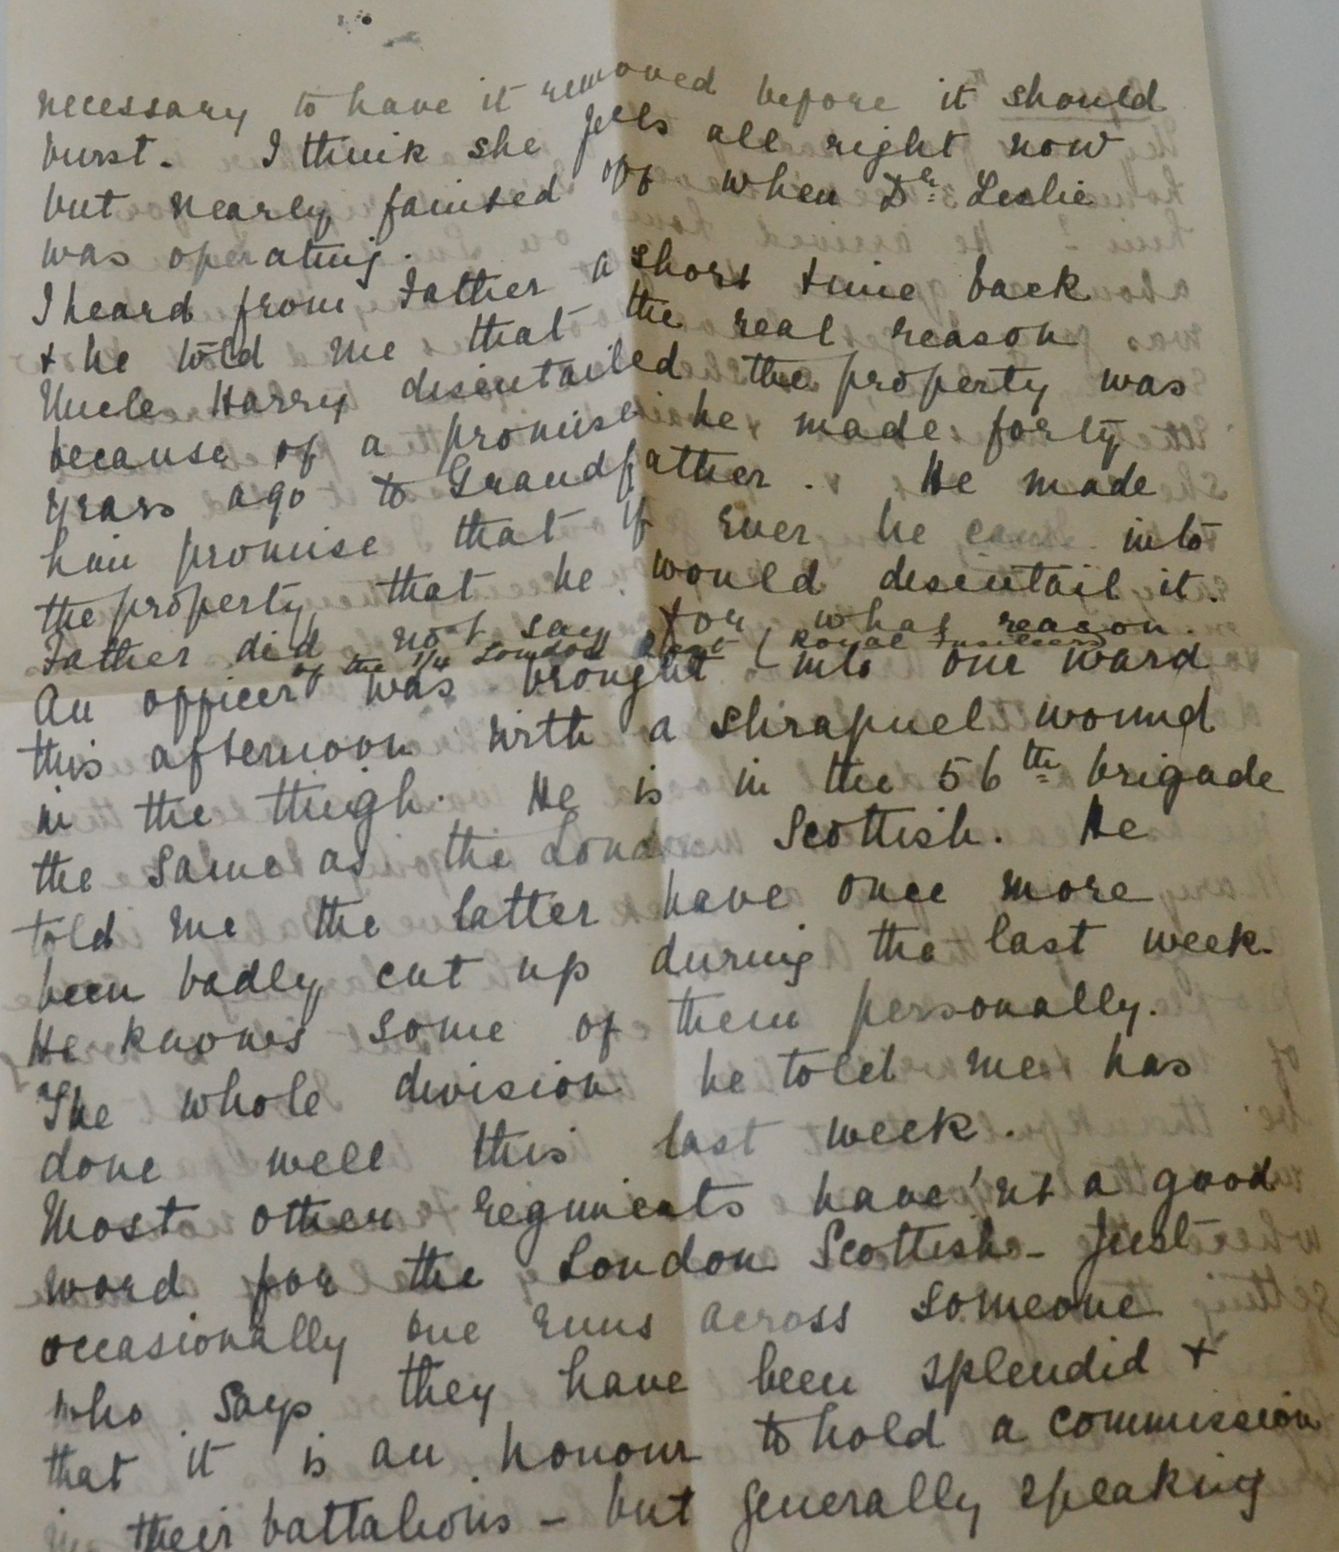 necessary to have it removed before it should
burst. I think she feels all right now
but nearly fainted off when Dr. Leslie
was operating.
I heard from Father a short time back
& he told me that the real reason
Uncle Harry disentailed the property was
because of a promise he made forty
years ago to Grandfather. He made
him promise that if ever he came into
the property that he would disentail it.
Father did not say for what reason.
of the 1/4 London Regt (Royal Fusiliers)
An officer was brought into our ward
this afternoon with a shrapnel wound
in the thigh. He is in the 56th brigade
the same as the London Scottish. He
told me the latter have once more
been badly cut up during the last week.
He knows some of them personally.
The whole division he told me has
done well this last week.
Most other regiments have'nt a good
word for the London Scottish - Just
occasionally one runs across someone
who says they have been splendid &
that it is an honour to hold a commission
in their battalions - but generally speaking